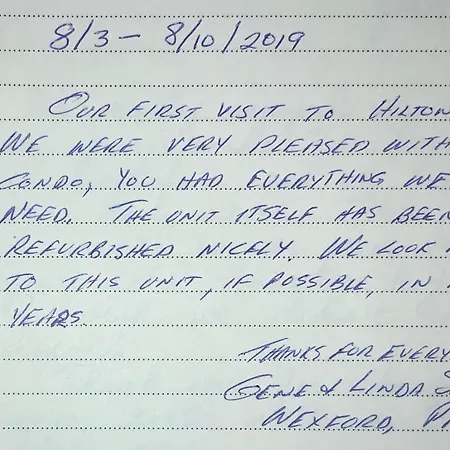 8/3 – 8/10/2019
OUR FIRST VISIT TO HILTON
WE WERE VERY PLEASED WITH
CONDO, YOU HAD EVERYTHING WE
NEED. THE UNIT ITSELF HAS BEEN
REFURBISHED NICELY. WE LOOK
TO THIS UNIT, IF POSSIBLE, IN
YEARS.
THANKS FOR EVERY
GENE & LINDA
WEXFORD,